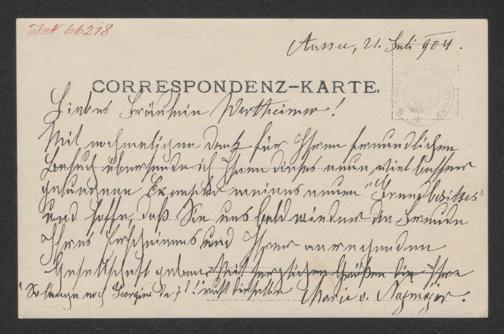 J.N. 66218
Aussee, 21. Juli 904.
CORRESPONDENZ-KARTE.
Liebes Fräulein Wertheimer!
Mit nochmaligem Dank für Ihren freundlichen
Besuch übersende ich Ihnen dieses neue, viel besser
gelungene Exemplar meines neuen
und hoffe, daß Sie uns bald wieder die Freude
Ihres Erscheinens und Ihrer anregenden
Gesellschaft geben. Mit herzlichen Grüßen die Ihre
Marie v. Najmájer.